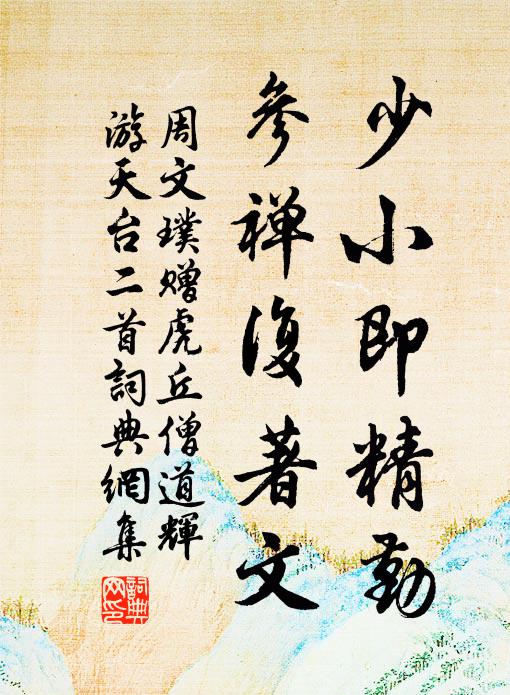 少小即精勤
參禅復著文
周文璞赠虎丘僧道輝
游天台二首詞典網集
詞典网印